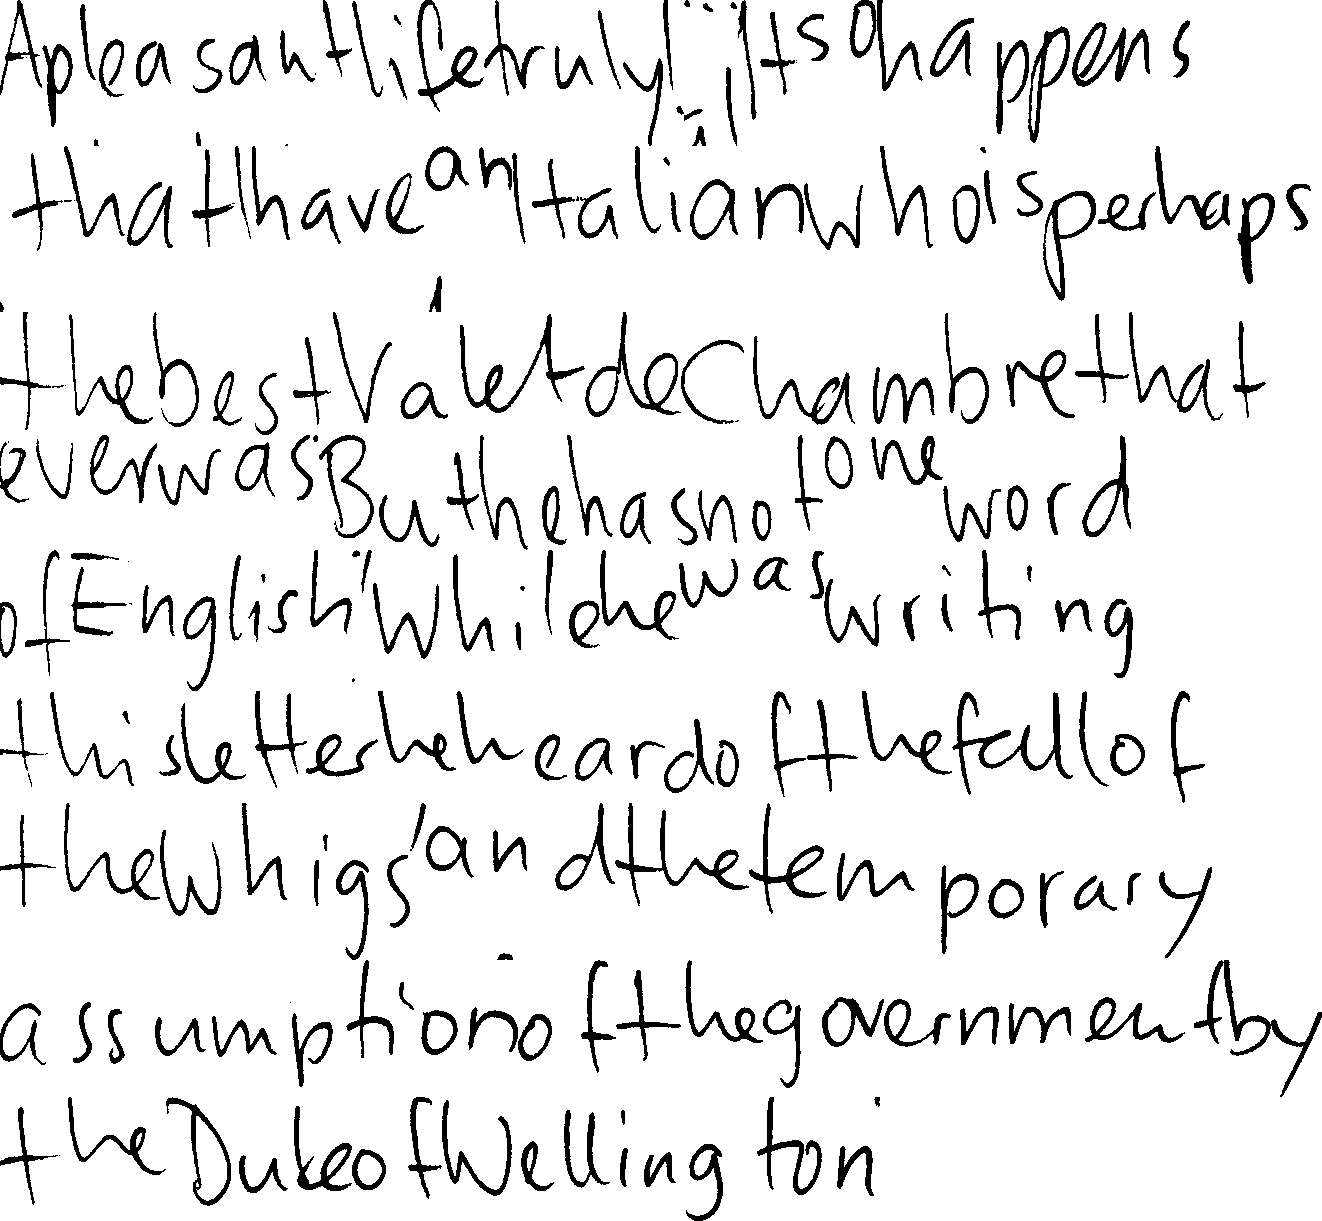 A pleasant life truly! It so happens
that I have an Italian who is perhaps
the best Valet de Chambre that
ever was But he has not one word
of English While he was writing
this letter he heard of the fall of
the Whigs and the temporary
assumption of the government by
the Duke of Wellington